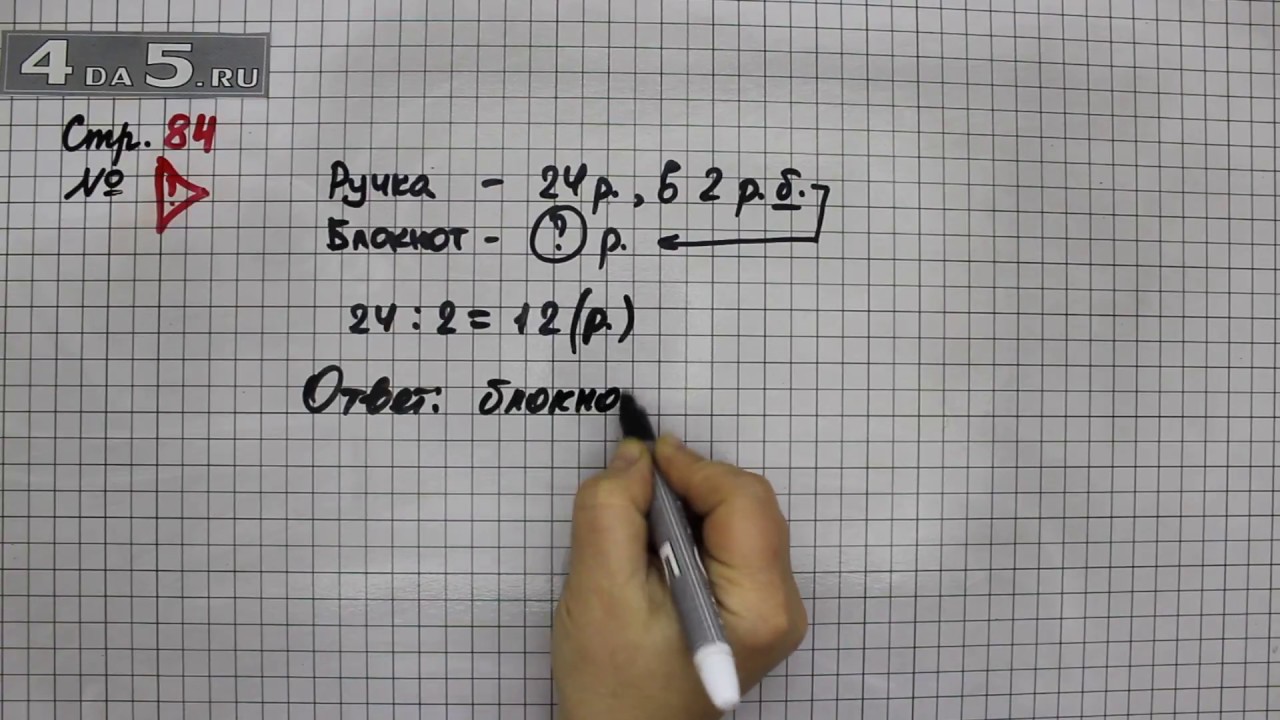 4 DA 5.RU
Стр. 84
№ !
Ручка - 24 р., в 2 р. б.
Блокнот - ? р.
24 : 2 = 12 (р.)
Ответ: блокно